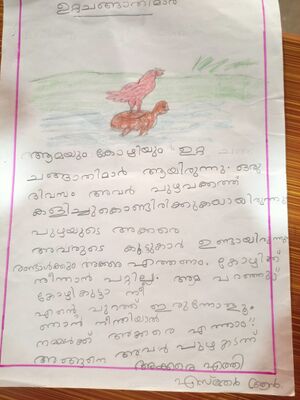 ഉറ്റചങ്ങാതിമാർ
ആമയും കോഴിയും ഉറ്റ
ചങ്ങാതിമാർ ആയിരുന്നു. ഒരു
ദിവസം അവർ പുഴവക്കത്ത്
കളിച്ചുകൊണ്ടിരിക്കുകയായിരുന്നു
പുഴയുടെ അക്കരെ
അവരുടെ കൂട്ടുകാർ ഉണ്ടായിരുന്നു
രണ്ടാൾക്കും അക്കരെ എത്തണം. കോഴിക്ക്
നീന്താൻ പറ്റില്ല. ആമ പറഞ്ഞു
കോഴികുട്ടാ നീ
എന്റെ പുറത്ത് ഇരുന്നോളൂ.
ഞാൻ നീന്തിയാൽ
നമ്മൾക്ക് അക്കരെ എത്താം.
അങ്ങനെ അവർ പുഴ കടന്ന്
അക്കരെ എത്തി
എസ്തേർ